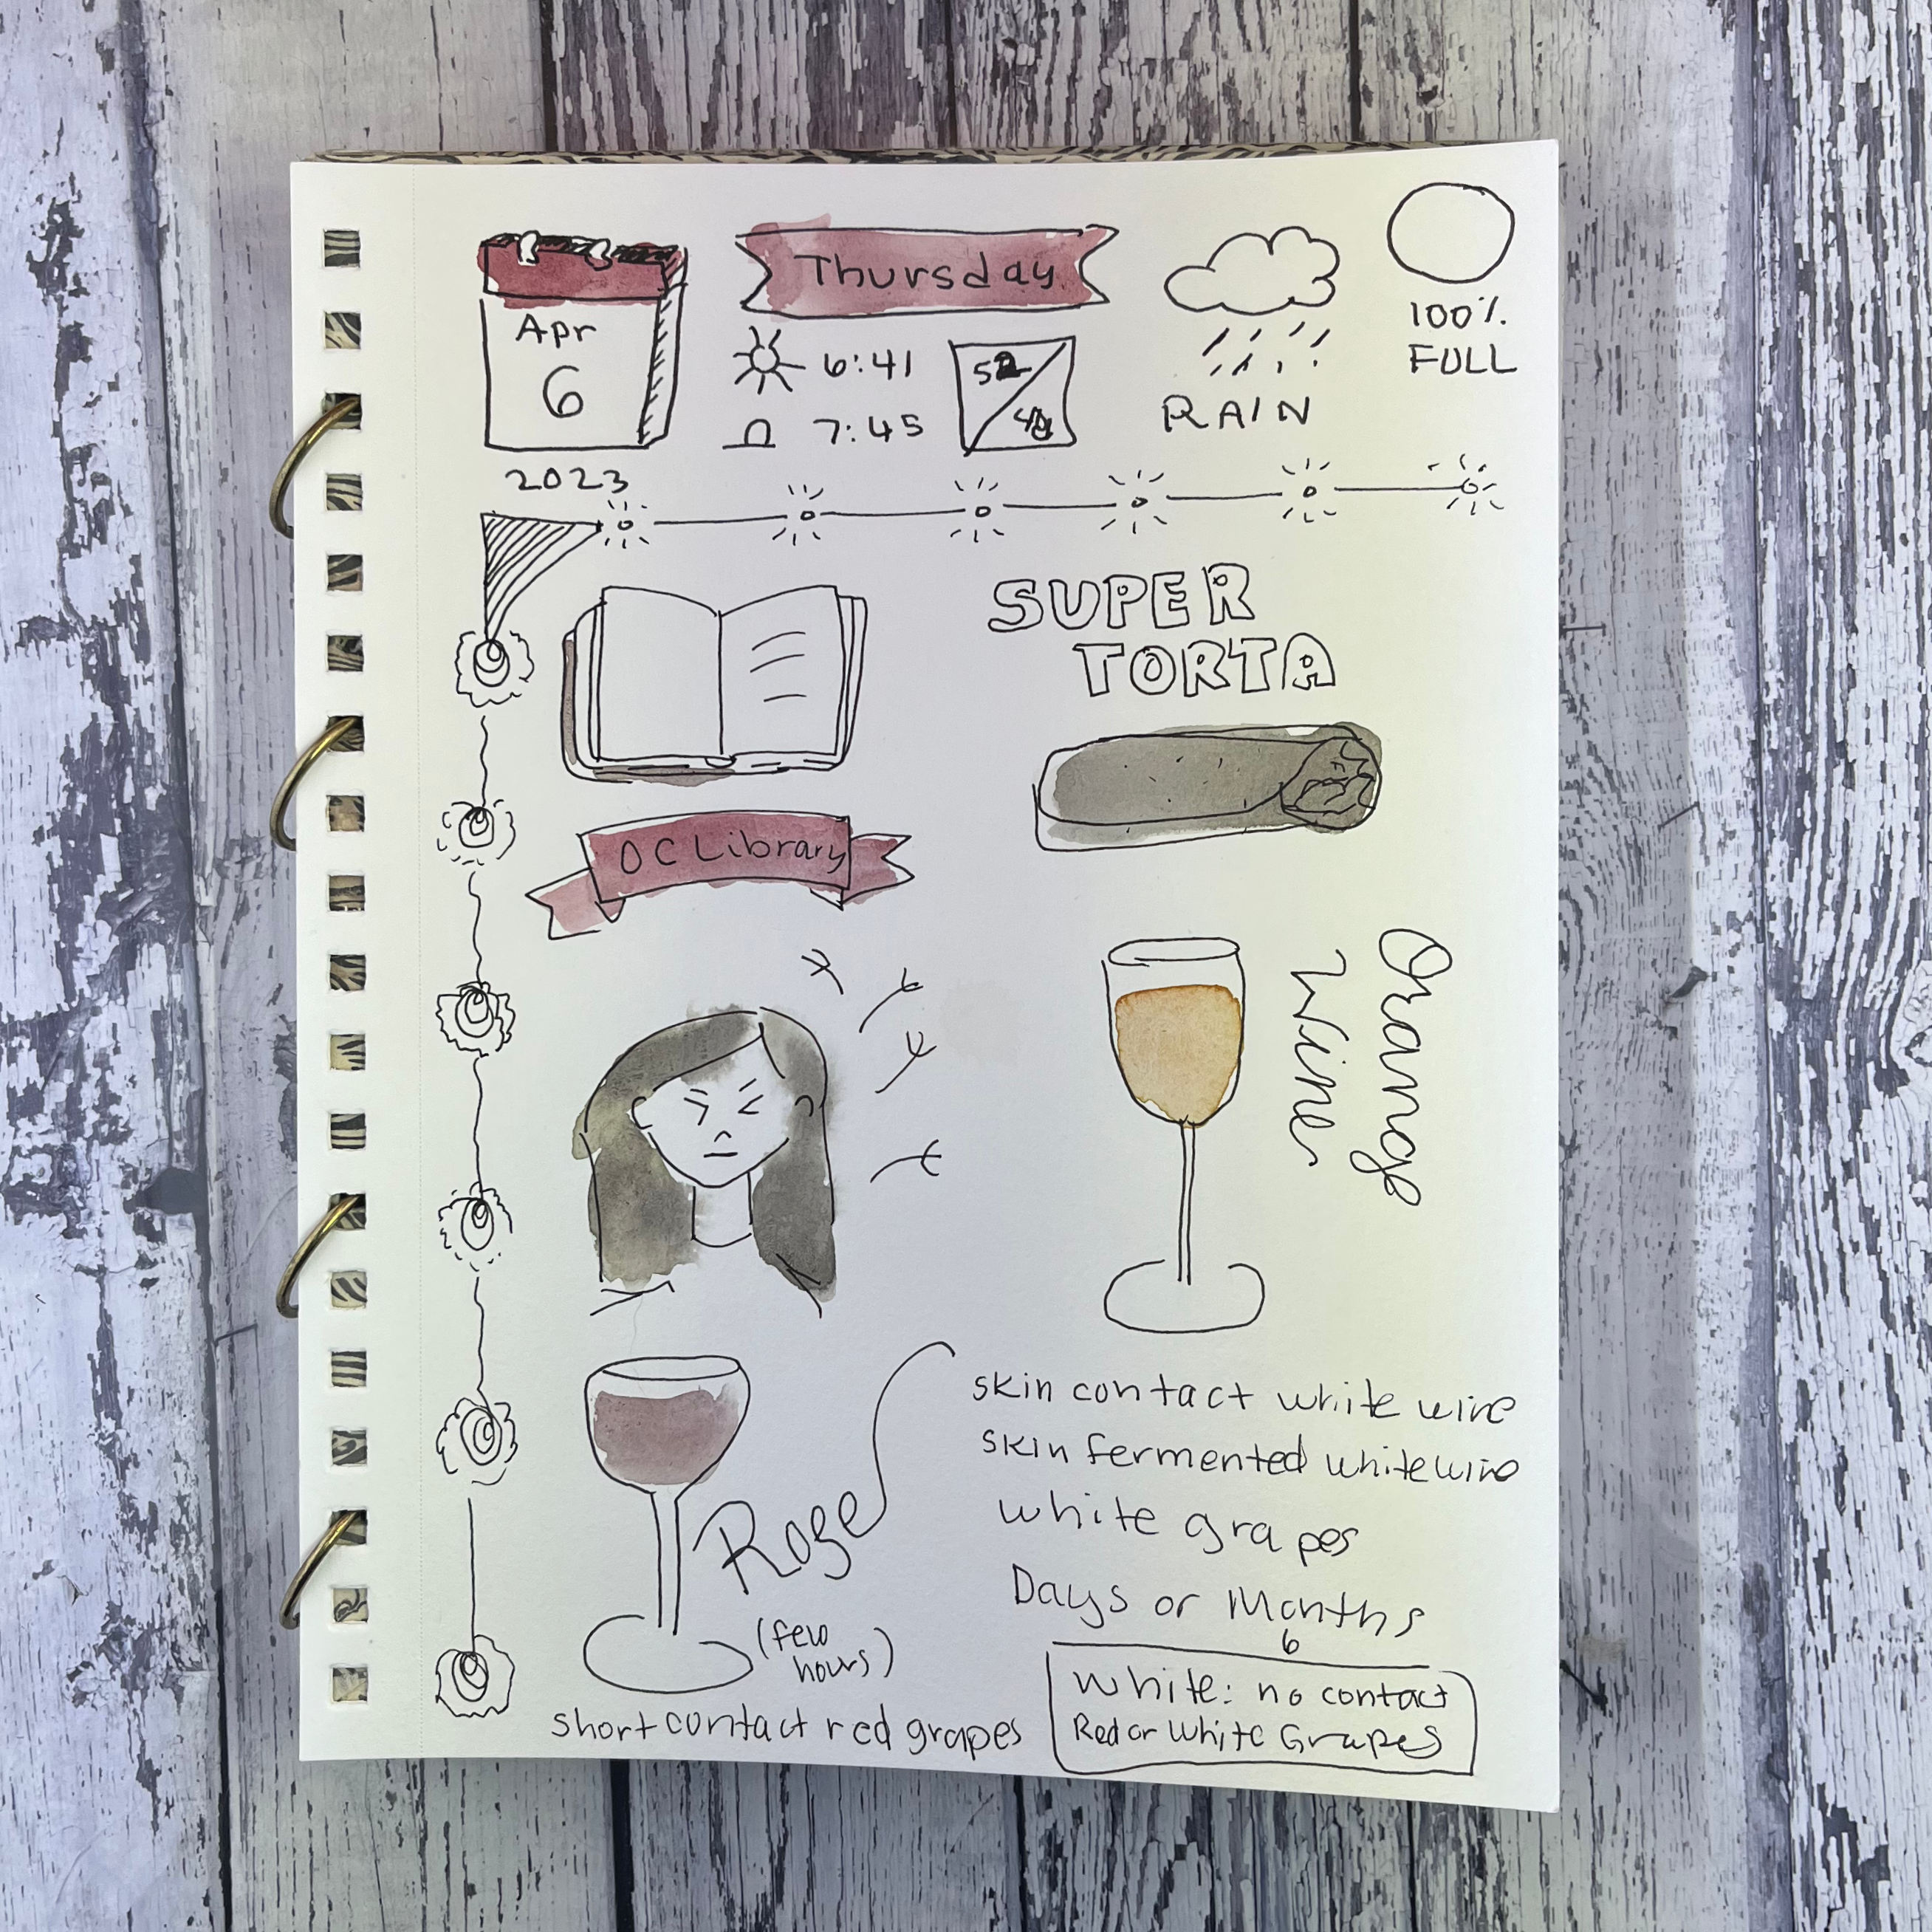 Thursday
Apr
6
2023
6:41
7:45
52
RAIN
100%
FULL
SUPER
TORTA
OC Library
Orange
Wine
Rose
(few
hours)
short contact red grapes
skin contact white wine
skin fermented white wine
white grapes
Days or Months
6
White: no contact
Red or White Grapes